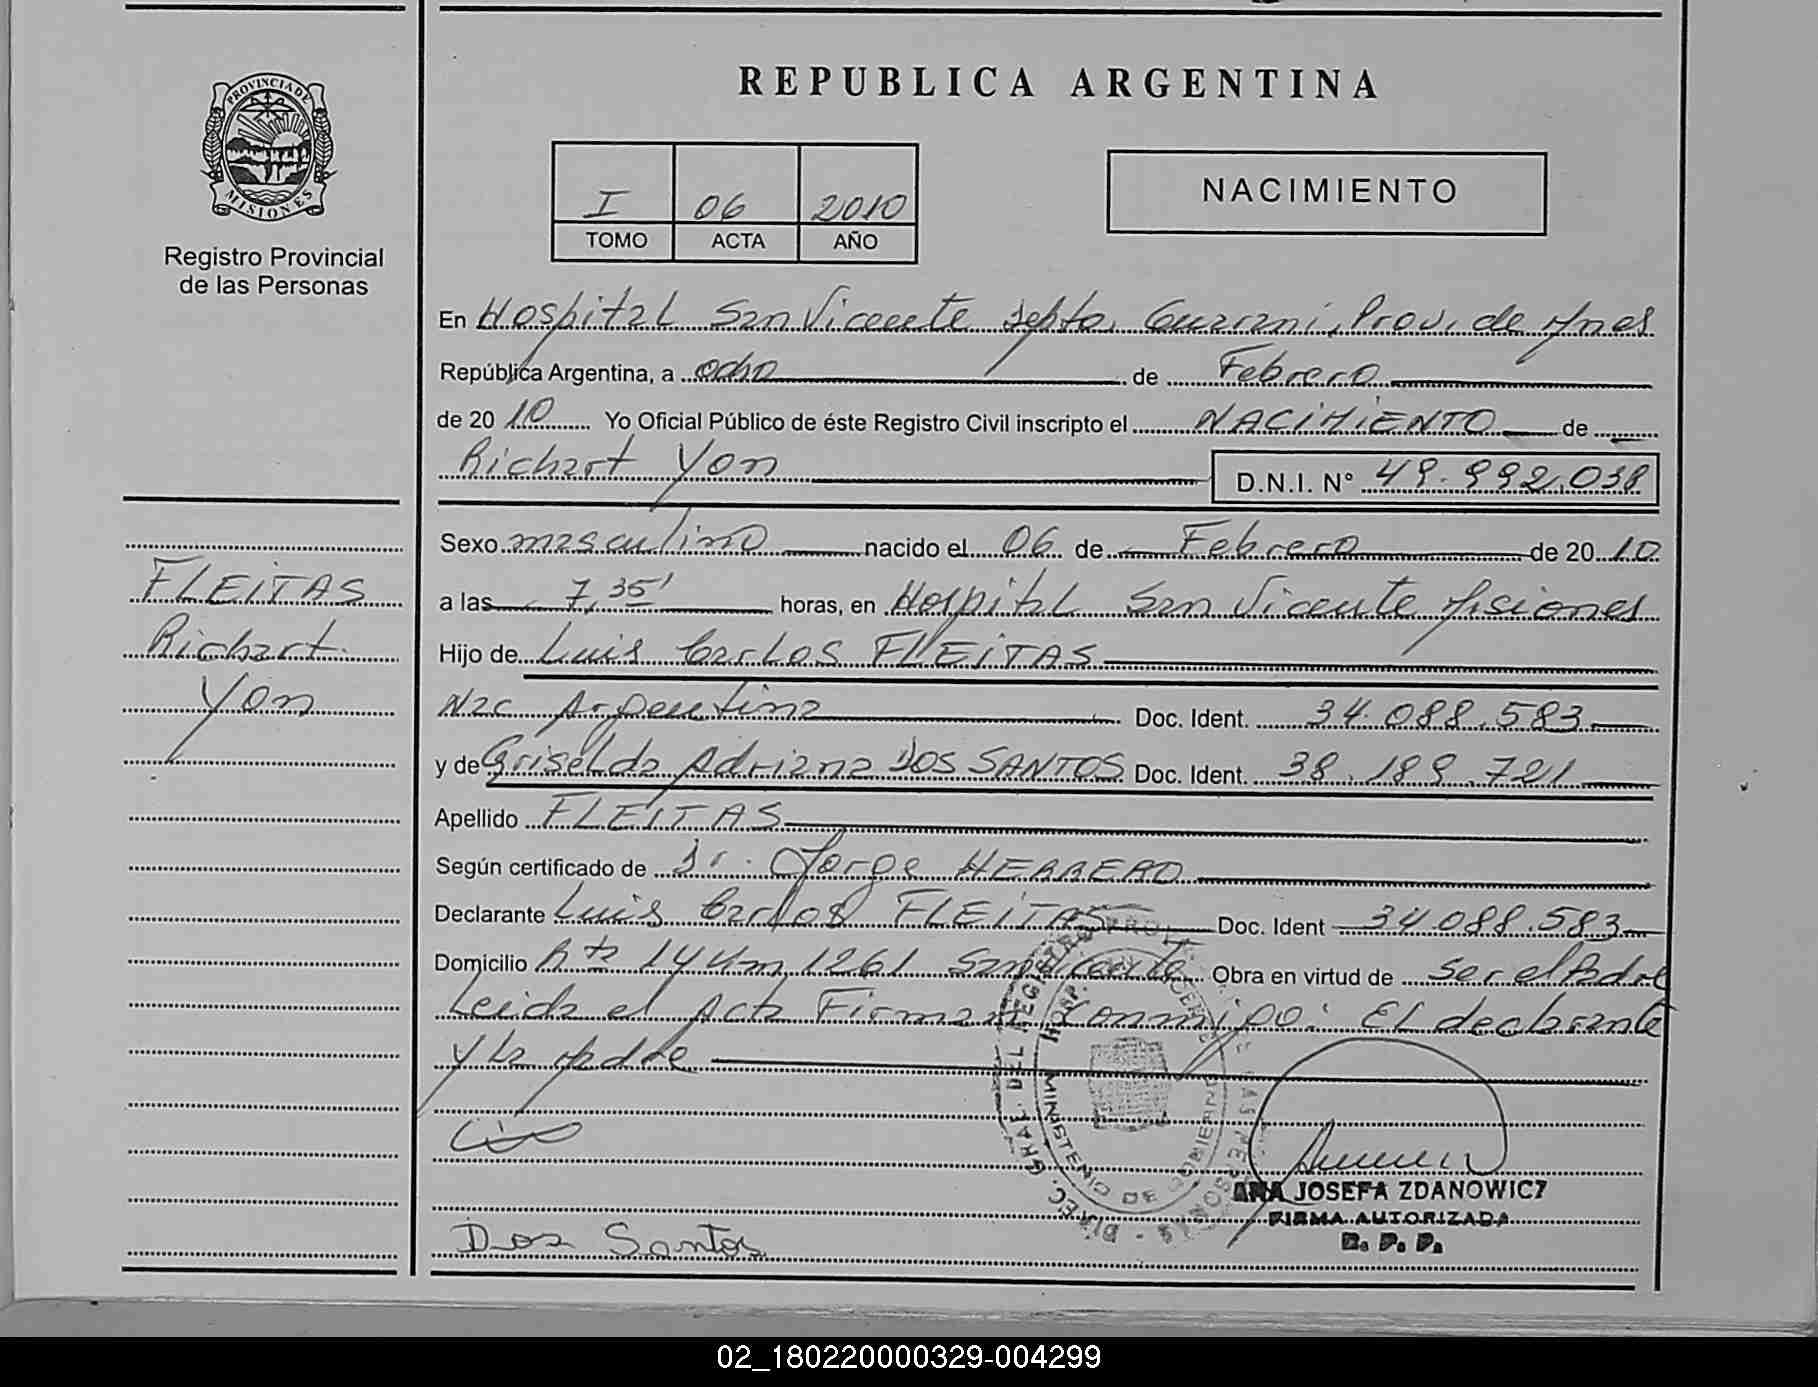 REPUBLICA ARGENTINA
PROVINCIA DE
MISIONES
Registro Provincial
de las Personas
I 06 2010
TOMO ACTA AÑO
NACIMIENTO
En Hospital San Vicente depto. Guarani, Prov. de Mnes
República Argentina, a ocho de Febrero
de 2010 Yo Oficial Público de éste Registro Civil inscripto el NACIMIENTO de
Richart Yon D.N.I. N° 49.992.038
Sexo masculino nacido el 06 de Febrero de 2010
a las 7,35' horas, en Hospital San Vicente Misiones
Hijo de Luis Carlos FLEITAS
Nac Argentina Doc. Ident. 34.088.583
y de Griselda Adriana DOS SANTOS Doc. Ident. 38.189.721
Apellido FLEITAS
Según certificado de Dr. Jorge HERRERO
Declarante Luis Carlos FLEITAS Doc. Ident 34.088.583
Domicilio Rta 14 Km 1261 San Vicente Obra en virtud de ser el Padre
Leida el Acta Firman conmigo: El declarante
y la Madre
FLEITAS
Richart
Yon
DIREC. GRAL. DEL REGISTRO PROV. DE LAS PERSONAS
HOSP.
MINISTERIO DE GOBIERNO
ANA JOSEFA ZDANOWICZ
FIRMA AUTORIZADA
R. P. P.
Dos Santos
02_180220000329-004299